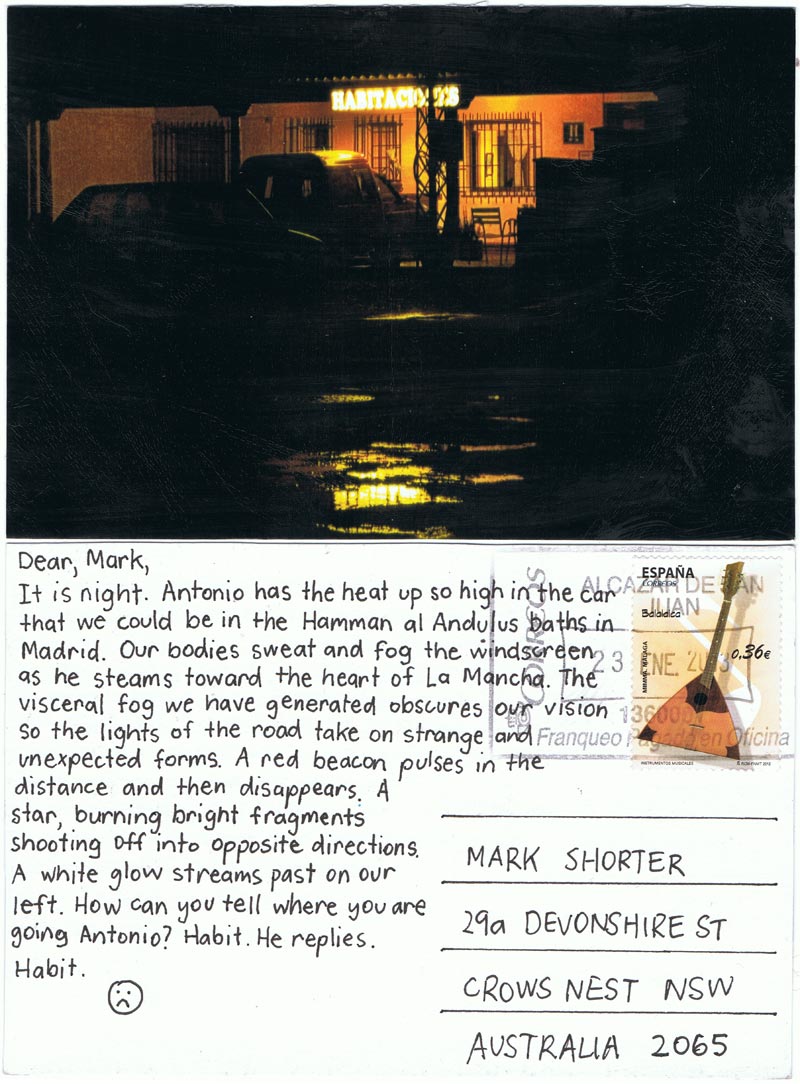 HABITACIONES
Dear, Mark,
It is night. Antonio has the heat up so high in the car
that we could be in the Hamman al Andulus baths in
Madrid. Our bodies sweat and fog the windscreen
as he steams toward the heart of La Mancha. The
visceral fog we have generated obscures our vision
so the lights of the road take on strange and
unexpected forms. A red beacon pulses in the
distance and then disappears. A
star, burning bright fragments
shooting off into opposite directions.
A white glow streams past on our
left. How can you tell where you are
going Antonio? Habit. He replies.
Habit.
CORREOS
ALCAZAR DE SAN
JUAN
23 ENE.
Franqueo Pagado en Oficina
ESPAÑA
CORREOS
Balalaica
0,36€
MIMMA. MÁLAGA
INSTRUMENTOS MUSICALES
© RCM-FNMT 2012
MARK SHORTER
29a DEVONSHIRE ST
CROWS NEST NSW
AUSTRALIA 2065